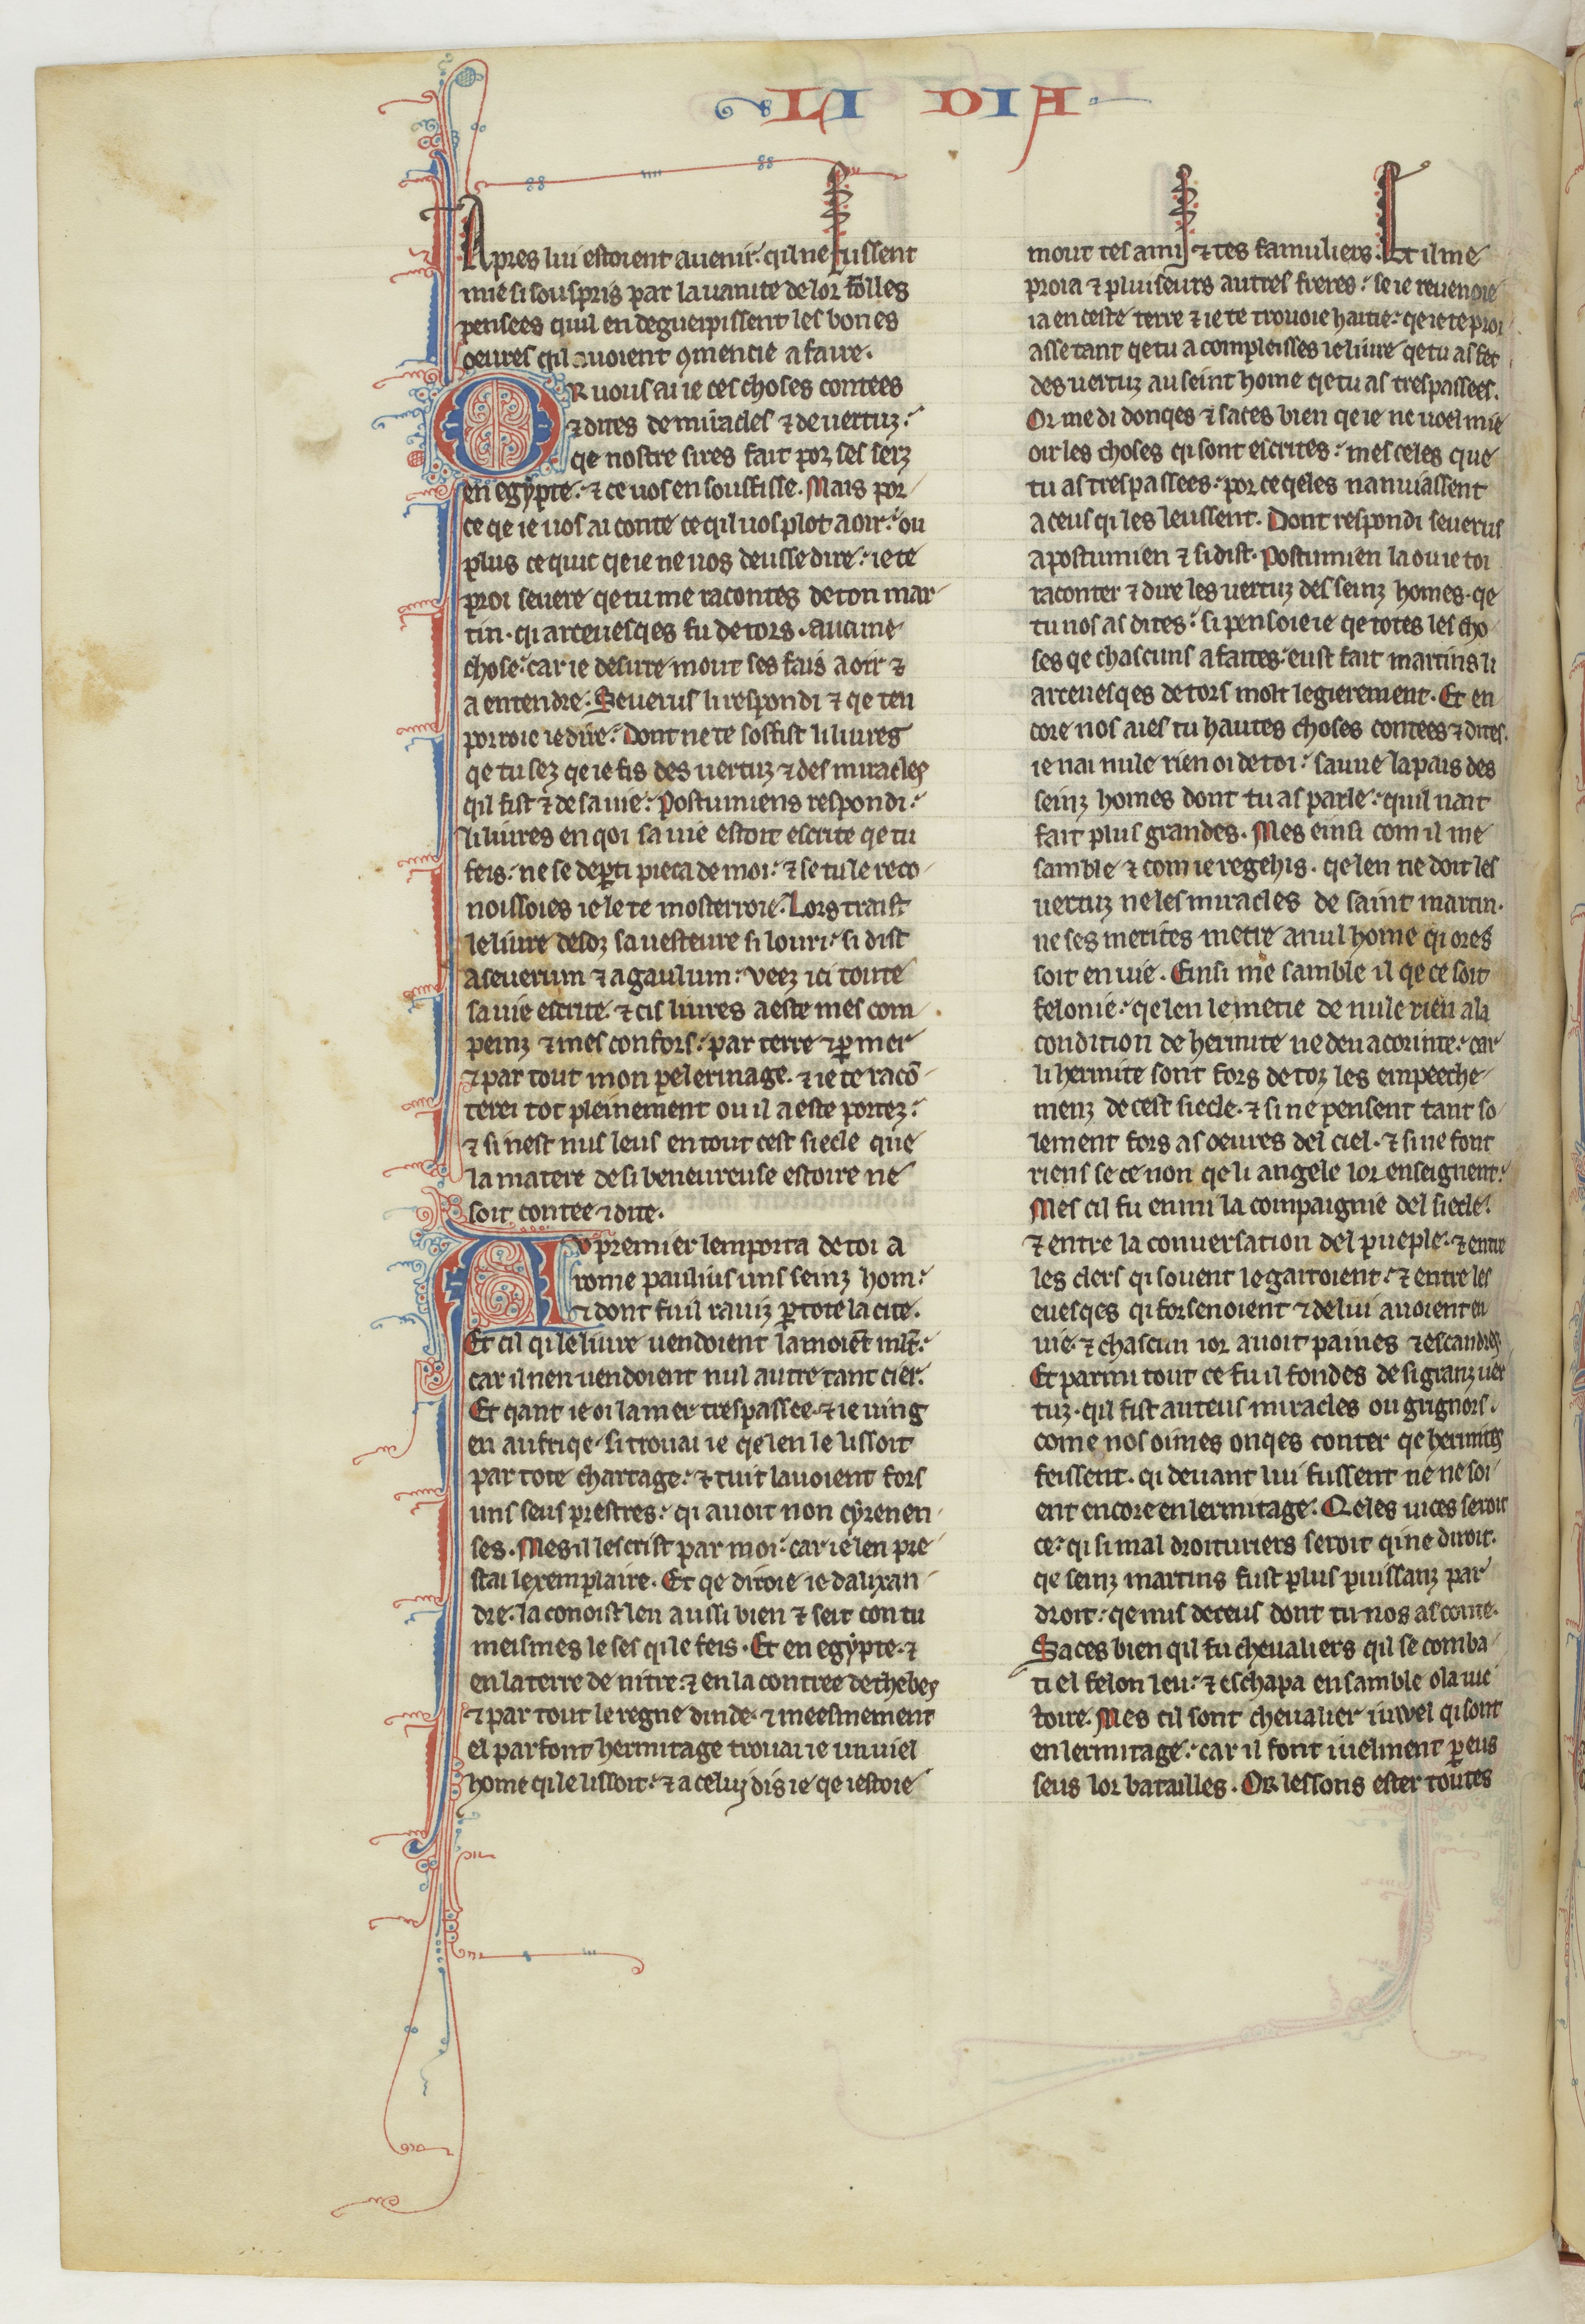 LI VIA
Apres lui estoient auenir. qil ne fussent
mie si souspris par la uanite de lor folles
pensees quil en deguerpissent les bones
oeures qil auoient 9mencie a faire.
OR uous ai ie ces choses contees
⁊ dites de miracles ⁊ de uertuz.
qe nostre sires fait por ses serz
en egypte. ⁊ ce uos en souffisse. Mais por
ce qe ie uos ai conte ce qil uos plot a oir. ou
plus ce quic qe ie ne uos deusse dire. ie te
proi seuere qe tu me racontes de ton mar
tin. qi arceuesqes fu de tors. aucune
chose. car ie desirre mout ses fais a oir ⁊
a entendre. Seuerus li respondi ⁊ qe ten
porroie ie dire. Dont ne te soffist li liures
qe tu sez qe ie fis des uertuz ⁊ des miracles
qil fist ⁊ de sa uie. Postumiens respondi.
li liures en qoi sa uie estoit escrite qe tu
feis. ne se departi pieca de moi. ⁊ se tu le reco
noissoies ie le te mosterroie. Lors traist
le liure desoz sa uesteure si louri. si dist
a seuerum ⁊ a gaulum. Veez ici toute
sa uie escrite. ⁊ cis liures a este mes com
peinz ⁊ mes confors. par terre ⁊ p mer
⁊ par tout mon pelerinage. ⁊ ie te raco
terei tot pleinement ou il a este portez.
⁊ si nest nus leus en tout cest siecle que
la matere de si beneureuse estoire ne
soit contee ⁊ dite.
AV premier lemporta de toi a
rome paulius uns seinz hom.
⁊ dont fu il rauiz p tote la cite.
Et cil qi le liure uendoient lamoiet mlt.
car il nen uendoient nul autre tant cier.
Et qant ie oi la mer trespassee. ⁊ ie uing
en aufriqe. si trouai ie qe len le lissoit
par tote chartage. ⁊ tuit lauoient fors
uns seus prestres. qi auoit non cyrenen
ses. Mes il lescrist par moi. car ie len pre
stai lexemplaire. Et qe diroie ie dalixan
dre. la conoist len aussi bien ⁊ seit con tu
meismes le ses qi le feis. Et en egypte. ⁊
en la terre de nitre. ⁊ en la contree de thebes
⁊ par tout le regne dinde. ⁊ meesmement
el parfont hermitage trouai ie un uiel
home qi le lissoit. ⁊ a celuj dis ie qe iestoie
mout tes amij ⁊ tes famuliers. Et il me
proia ⁊ pluiseurs autres freres. se ie reuenoie
ia en ceste terre ⁊ ie te trouoie haitie. qe ie te proi
asse tant qe tu a compleisses ie liure qe tu as fet
des uertuz au seint home qe tu as trespassees.
Or me di donqes ⁊ saces bien qe ie ne uoel mie
oir les choses qi sont escrites. mes celes que
tu as trespassees. por ce qeles nanuiassent
a ceus qi les leussent. Dont respondi seuerus
a postumien ⁊ si dist. Postumien la ou ie toi
raconter ⁊ dire les uertuz des seinz homes. qe
tu nos as dites. si pensoie ie qe totes les cho
ses qe chascuns a faites. eust fait martins li
arceuesqes de tors molt legierement. Et en
core nos aies tu hautes choses contees ⁊ dites.
ie nai nule rien oi de toi. sauue la pais des
seinz homes dont tu as parle. quil nait
fait plus grandes. Mes einsi com il me
samble ⁊ com ie regehis. qe len ne doit les
uertuz ne les miracles de saint martin.
ne ses merites metre a nul home qi ores
soit en uie. Einsi me samble il qe ce soit
felonie. qe len le metie de nule rien a la
condition de hermite ne deu acorinte. car
li hermite sont fors de toz les empeeche
menz de cest siecle. ⁊ si ne pensent tant so
lement fors as oeures del ciel. ⁊ si ne font
riens se ce non qe li angele lor enseignent.
Mes cil fu enmi la compaignie del siecle.
⁊ entre la conuersation del pueple. ⁊ entre
les clers qi souent le gaitoient. ⁊ entre les
euesqes qi forsenoient ⁊ de lui auoient en
uie. ⁊ chascun ior auoit paines ⁊ escandres
Et parmi tout ce fu il fondes de si granz uer
tuz. qil fist auteus miracles ou grignors.
come nos oimes onqes conter qe hermites
feissent. qi deuant lui fussent ne ne soi
ent encore en lermitage. Qeles uices seroit
ce. qi si mal droituriers seroit qi ne diroit.
qe seinz martins fust plus puissanz par
droit. qe nus de ceus dont tu nos as conte.
Saces bien qil fu cheualiers qil se comba
ti el felon leu. ⁊ eschapa ensamble o la uic
toire. Mes cil sont cheualier iuwel qi sont
en lermitage. car il font iuelment p eus
seus lor batailles. Or lessons ester toutes